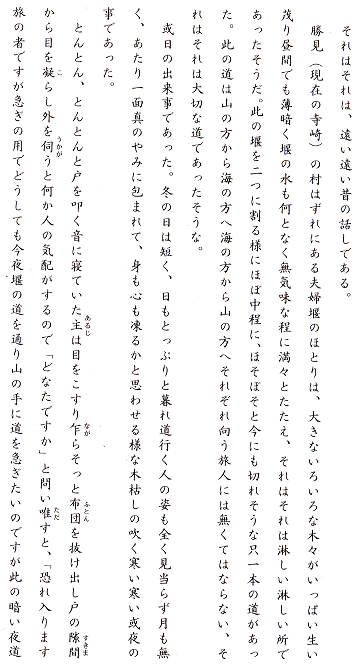 それはそれは、遠い遠い昔の話しである。
勝見（現在の寺崎）の村はずれにある夫婦堰のほとりは、大きないろいろな木々がいっぱい生い
茂り昼間でも薄暗く堰の水も何となく無気味な程に満々とたたえ、それはそれは淋しい淋しい所で
あったそうだ。此の堰を二つに割る様にほぼ中程に、ほそぼそと今にも切れそうな只一本の道があっ
た。此の道は山の方から海の方へ海の方から山の方へそれぞれ向う旅人には無くてはならない、そ
れはそれは大切な道であったそうな。
或日の出来事であった。冬の日は短く、日もとっぷりと暮れ道行く人の姿も全く見当らず月も無
く、あたり一面真のやみに包まれて、身も心も凍るかと思わせる様な木枯しの吹く寒い寒い或夜の
事であった。
とんとん、とんとんと戸を叩く音に寝ていた主あるじは目をこすり乍ながらそっと布団ふとんを抜け出し戸の隙間すきま
から目を凝こらし外を伺うかがうと何か人の気配がするので「どなたですか」と問い唯ただすと、「恐れ入ります
旅の者ですが急ぎの用でどうしても今夜堰の道を通り山の手に道を急ぎたいのですが此の暗い夜道